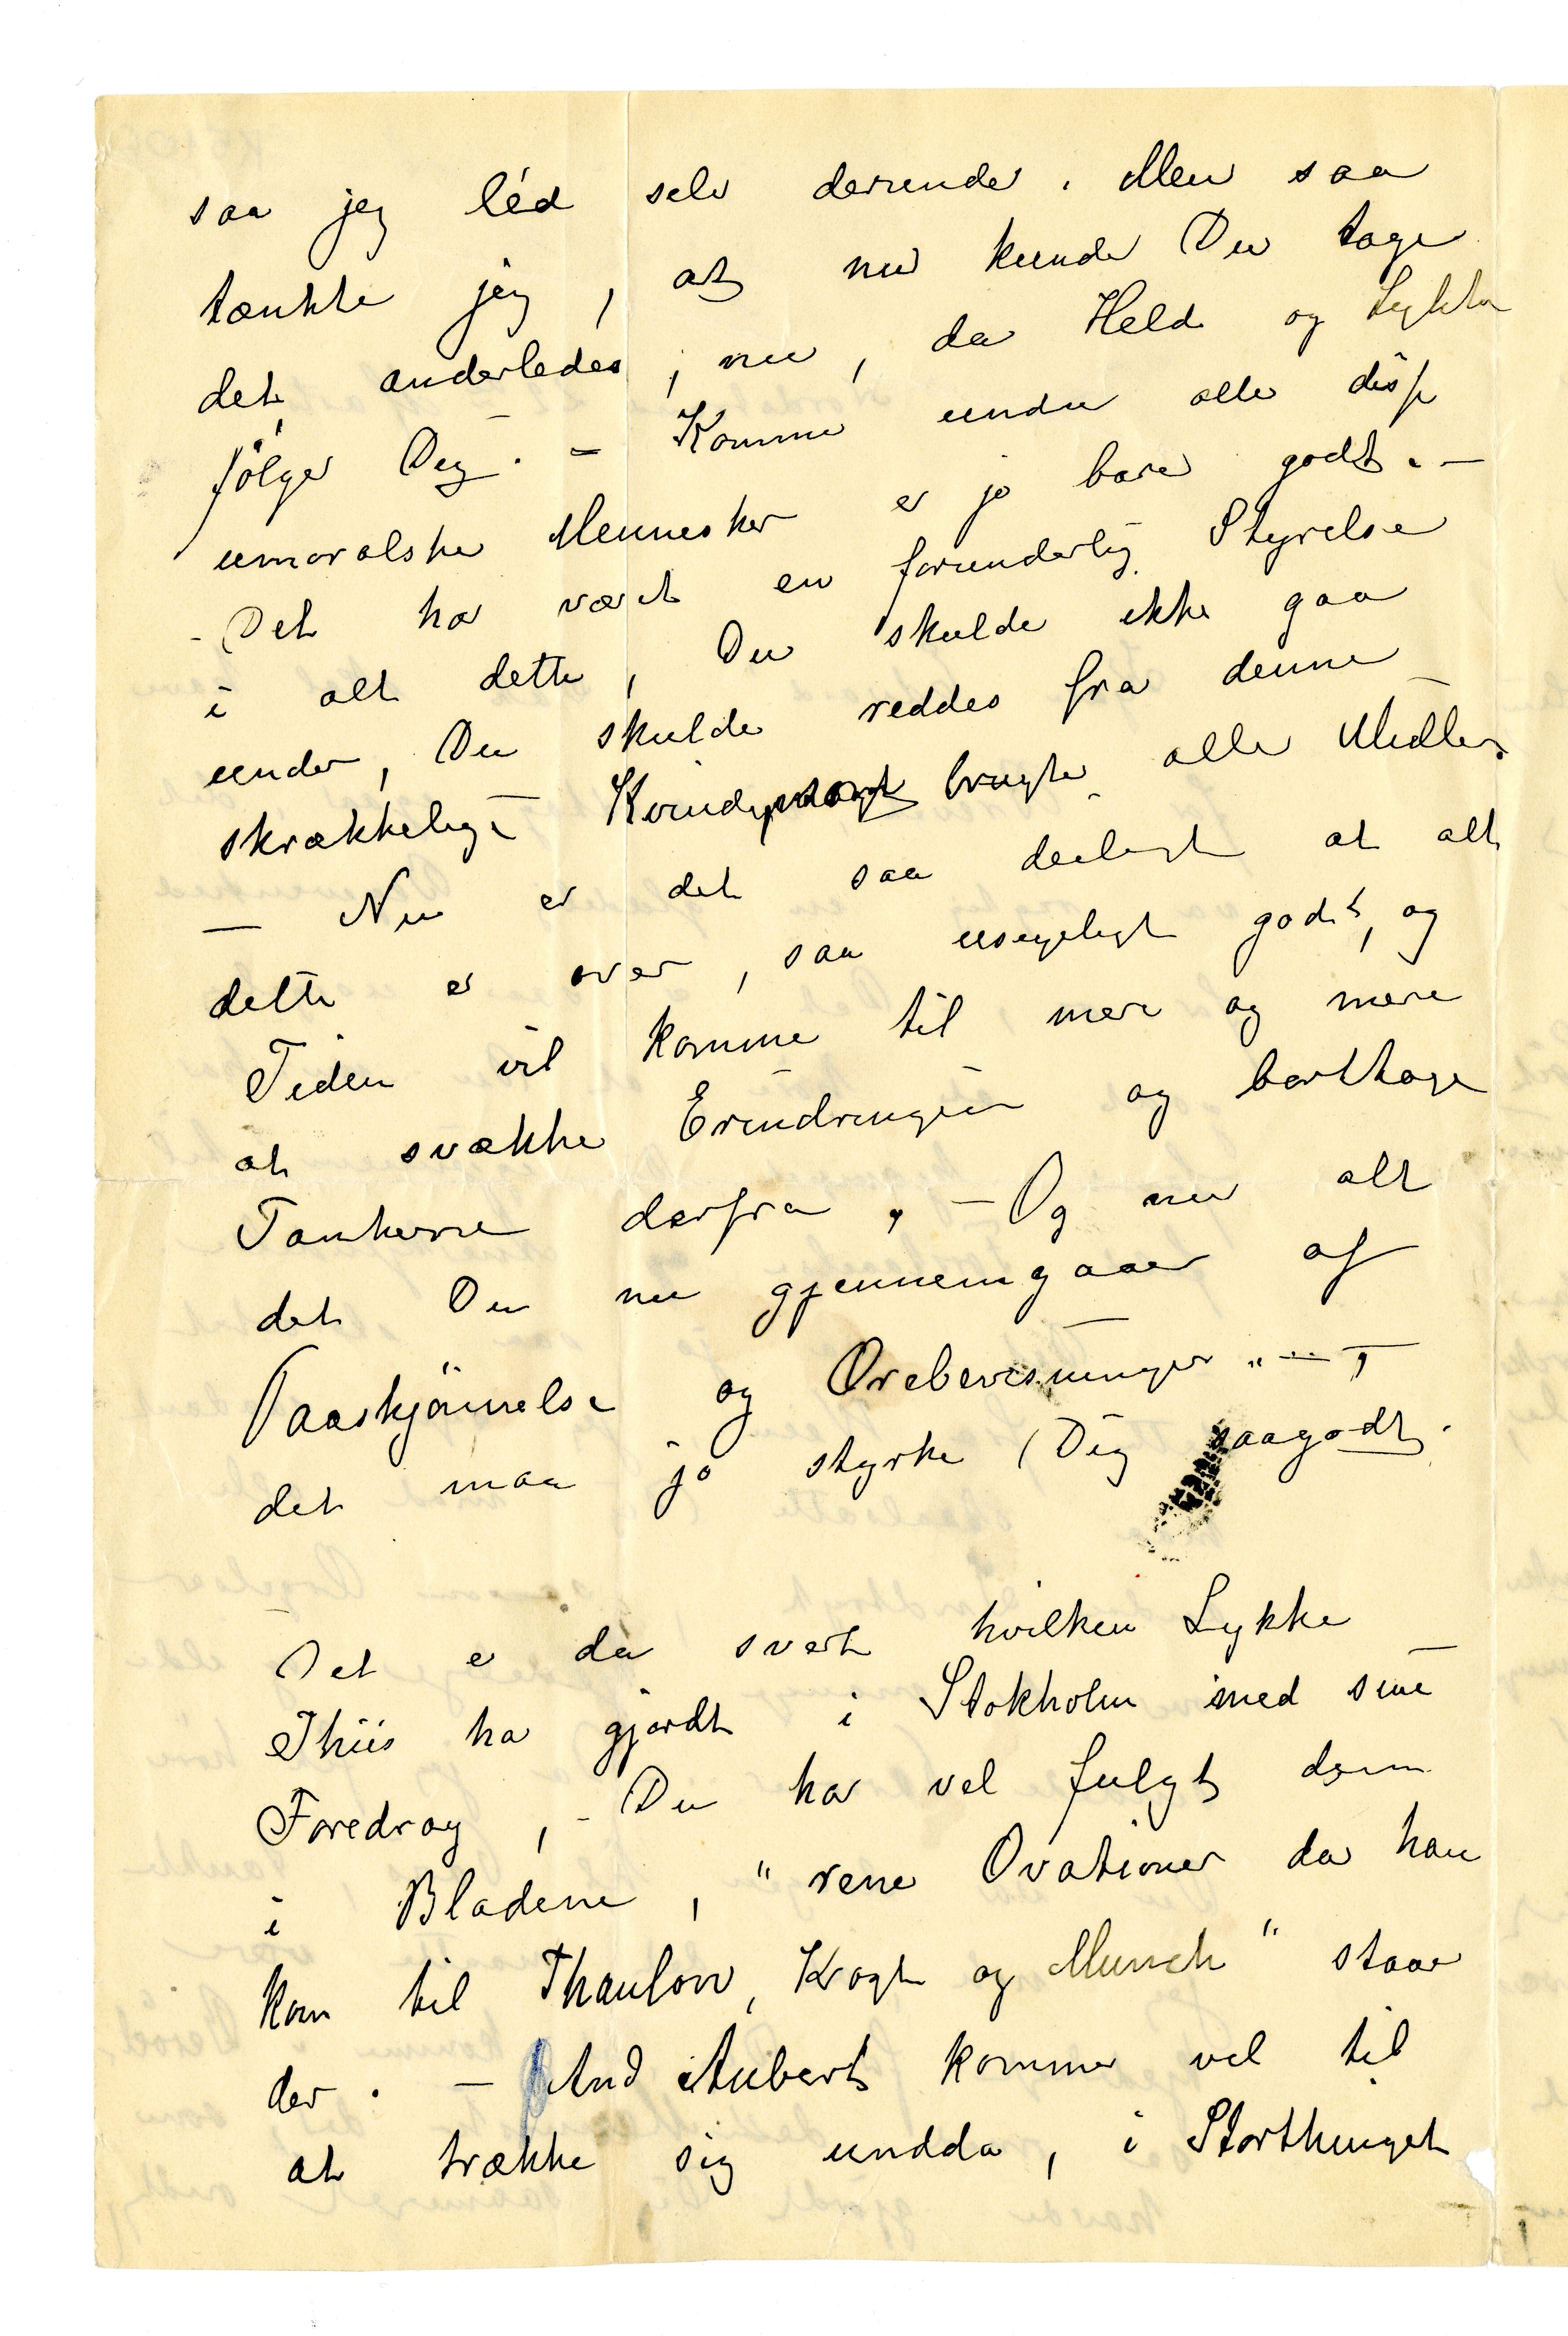 saa jeg léd selv derunder. Men saa
tænkte jeg, at nu kunde Du tage
det anderledes, nu, da Held og Lykke
følger Dig. – Komme under alle disse
umoralske Mennesker er jo bare godt. –
- Det har været en forunderlig Styrelse
i alt dette, Du skulde ikke gaa
under, Du skulde reddes fra denne
skrækkelige brugte alle Midler.
— Nu er det saa deiligt at alt
dette er over, saa usigeligt godt, og
Tiden vil komme til mere og mere
at svække Erindringen og borttage
Tankerne derfra, – Og nu alt
det Du nu gjennemgaaer af
Paaskjønnelse og Ærebevisninger " — ,
det maa jo styrke Dig saagodt.
Det er da svært hvilken Lykke
Thiis har gjordt i Stokholm med sine
Foredrag, - Du har vel fulgt dem
i Bladene, "rene Ovationer da han
kom til Thaulow, Krogh og Munch" staar
der. – And Aubert kommer vel til
at trække sig undda, i Storthinget